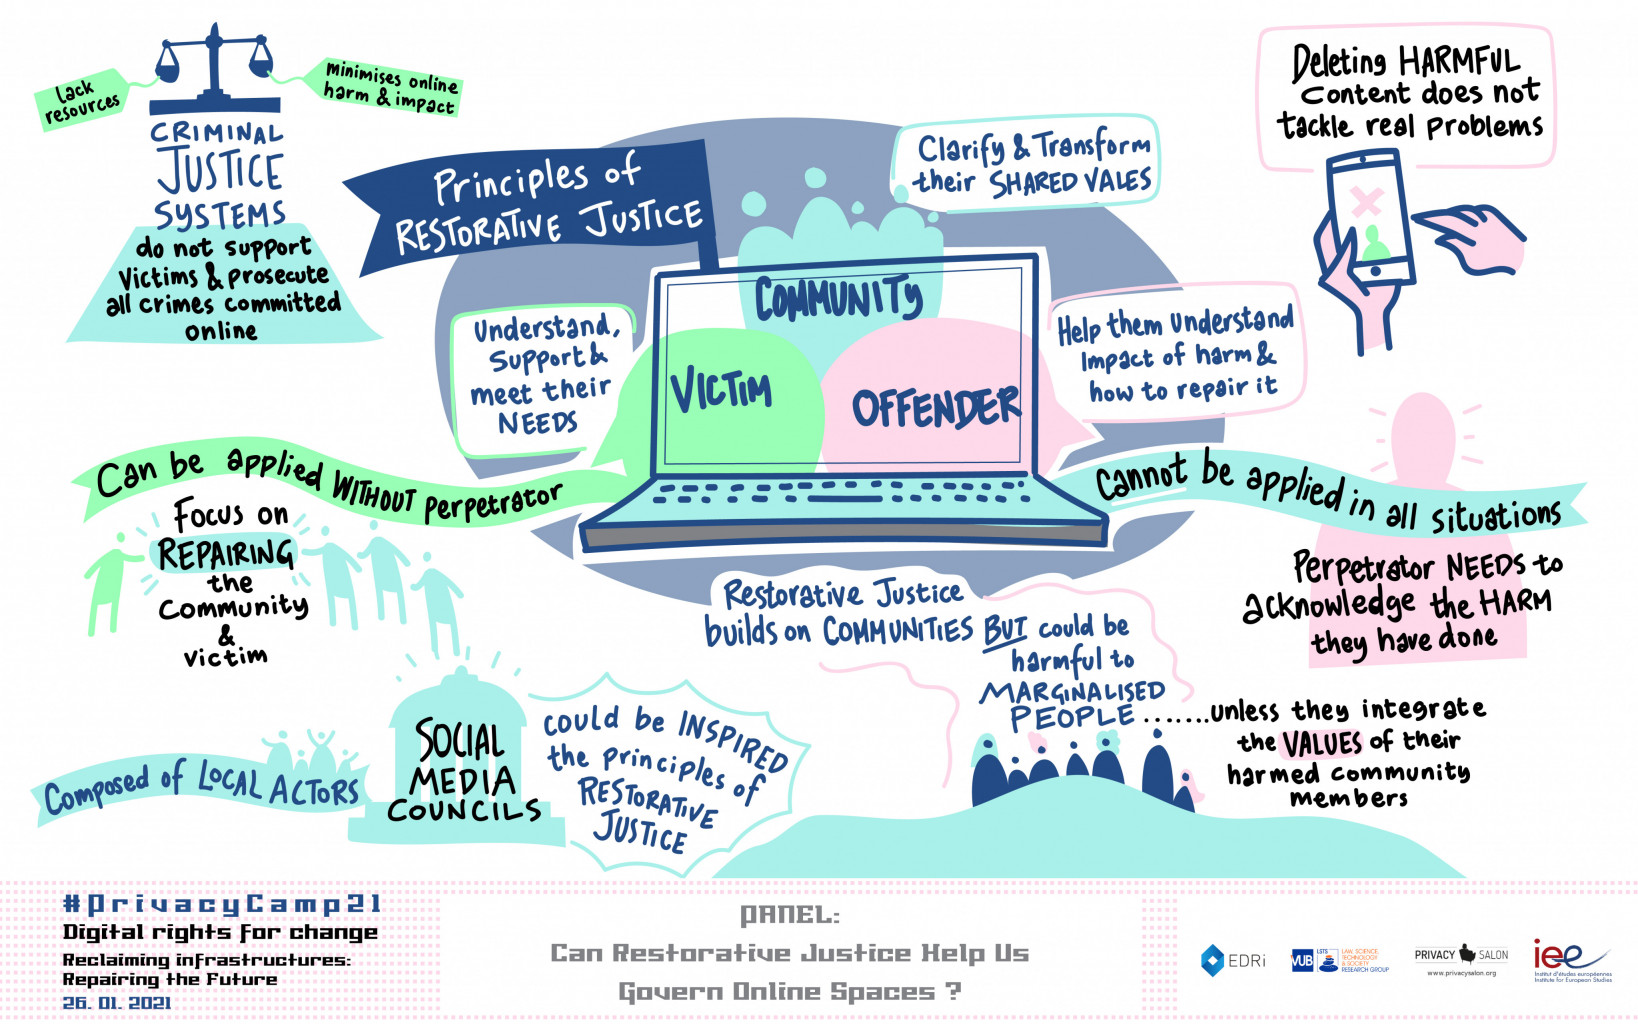 Lack
resources
minimises online
harm & impact
CRIMINAL
JUSTICE
SYSTEMS
do not support
Victims & prosecute
all crimes committed
online
Principles of
RESTORATIVE JUSTICE
Clarify & Transform
their SHARED VALES
Deleting HARMFUL
Content does not
tackle real problems
COMMUNITY
VICTIM
OFFENDER
Understand,
Support &
meet their
NEEDS
Help them understand
Impact of harm &
how to repair it
Can be applied WITHOUT perpetrator
Focus on
REPAIRING
the
Community
&
victim
Cannot be applied in all situations
Perpetrator NEEDS to
acknowledge the HARM
they have done
Restorative Justice
builds on COMMUNITIES BUT could be
harmful to
MARGINALISED
PEOPLE .......unless they integrate
the VALUES of their
harmed community
members
Composed of LOCAL ACTORS
SOCIAL
MEDIA
COUNCILS
could be INSPIRED
the principles of
RESTORATIVE
JUSTICE
#PrivacyCamp21
Digital rights for change
Reclaiming infrastructures:
Repairing the Future
26. 01. 2021
PANEL:
Can Restorative Justice Help Us
Govern Online Spaces ?
EDRi
VUB
LSTS
LAW, SCIENCE,
TECHNOLOGY
& SOCIETY
RESEARCH GROUP
PRIVACY SALON
www.privacysalon.org
iee
Institut d'études européennes
Institute for European Studies